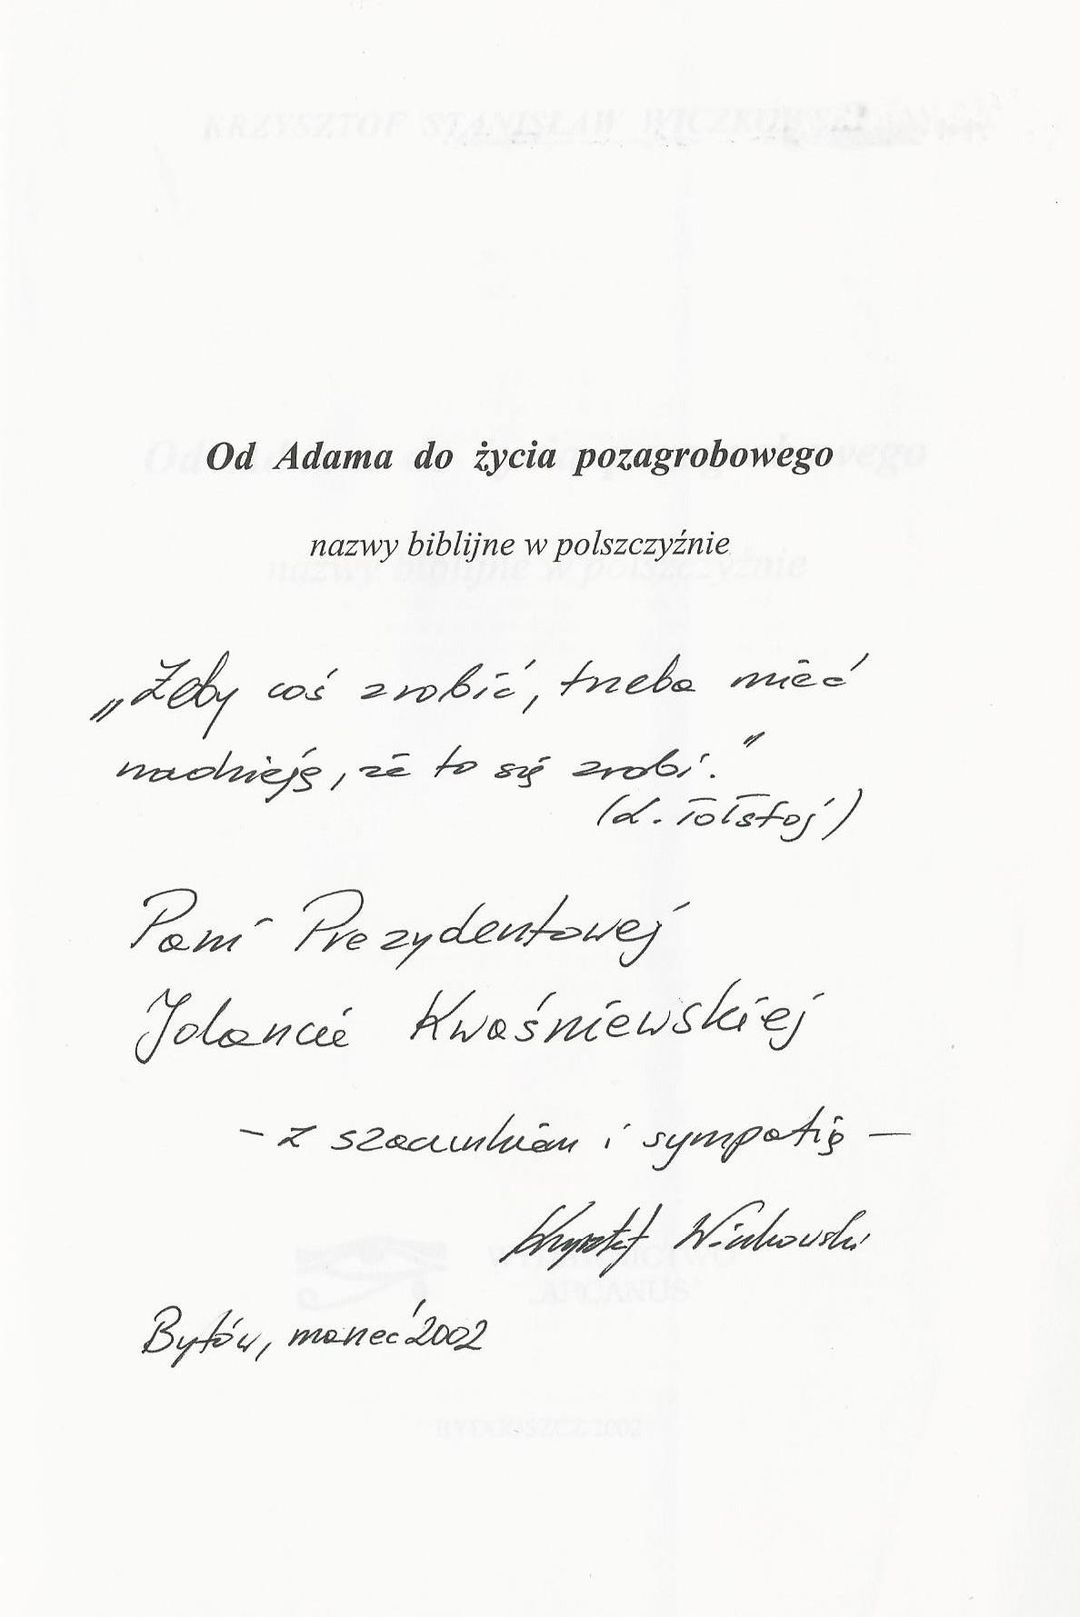 KRZYSZTOF STANISŁAW
Od Adama do życia pozagrobowego
nazwy biblijne w polszczyźnie
„Żeby coś zrobić, trzeba mieć
nadzieję, że to się zrobi.”
(L. Tołstoj)
Pani Prezydentowej
Jolancie Kwaśniewskiej
– z szacunkiem i sympatią –
Krzysztof
Bytów, marzec '2002
WYDAWNICTWO
„ARCANUS”
BYDGOSZCZ 2002